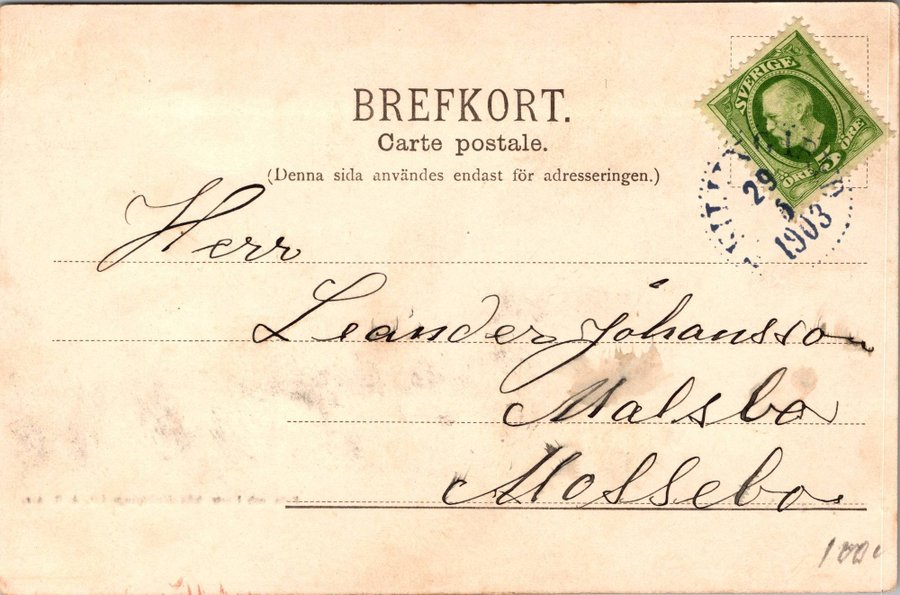 BREFKORT.
Carte postale.
(Denna sida användes endast för adresseringen.)
SVERIGE
5
ÖRE ÖRE
29
1903
Herr
Leander Johansson
Malsbo
Mossebo.